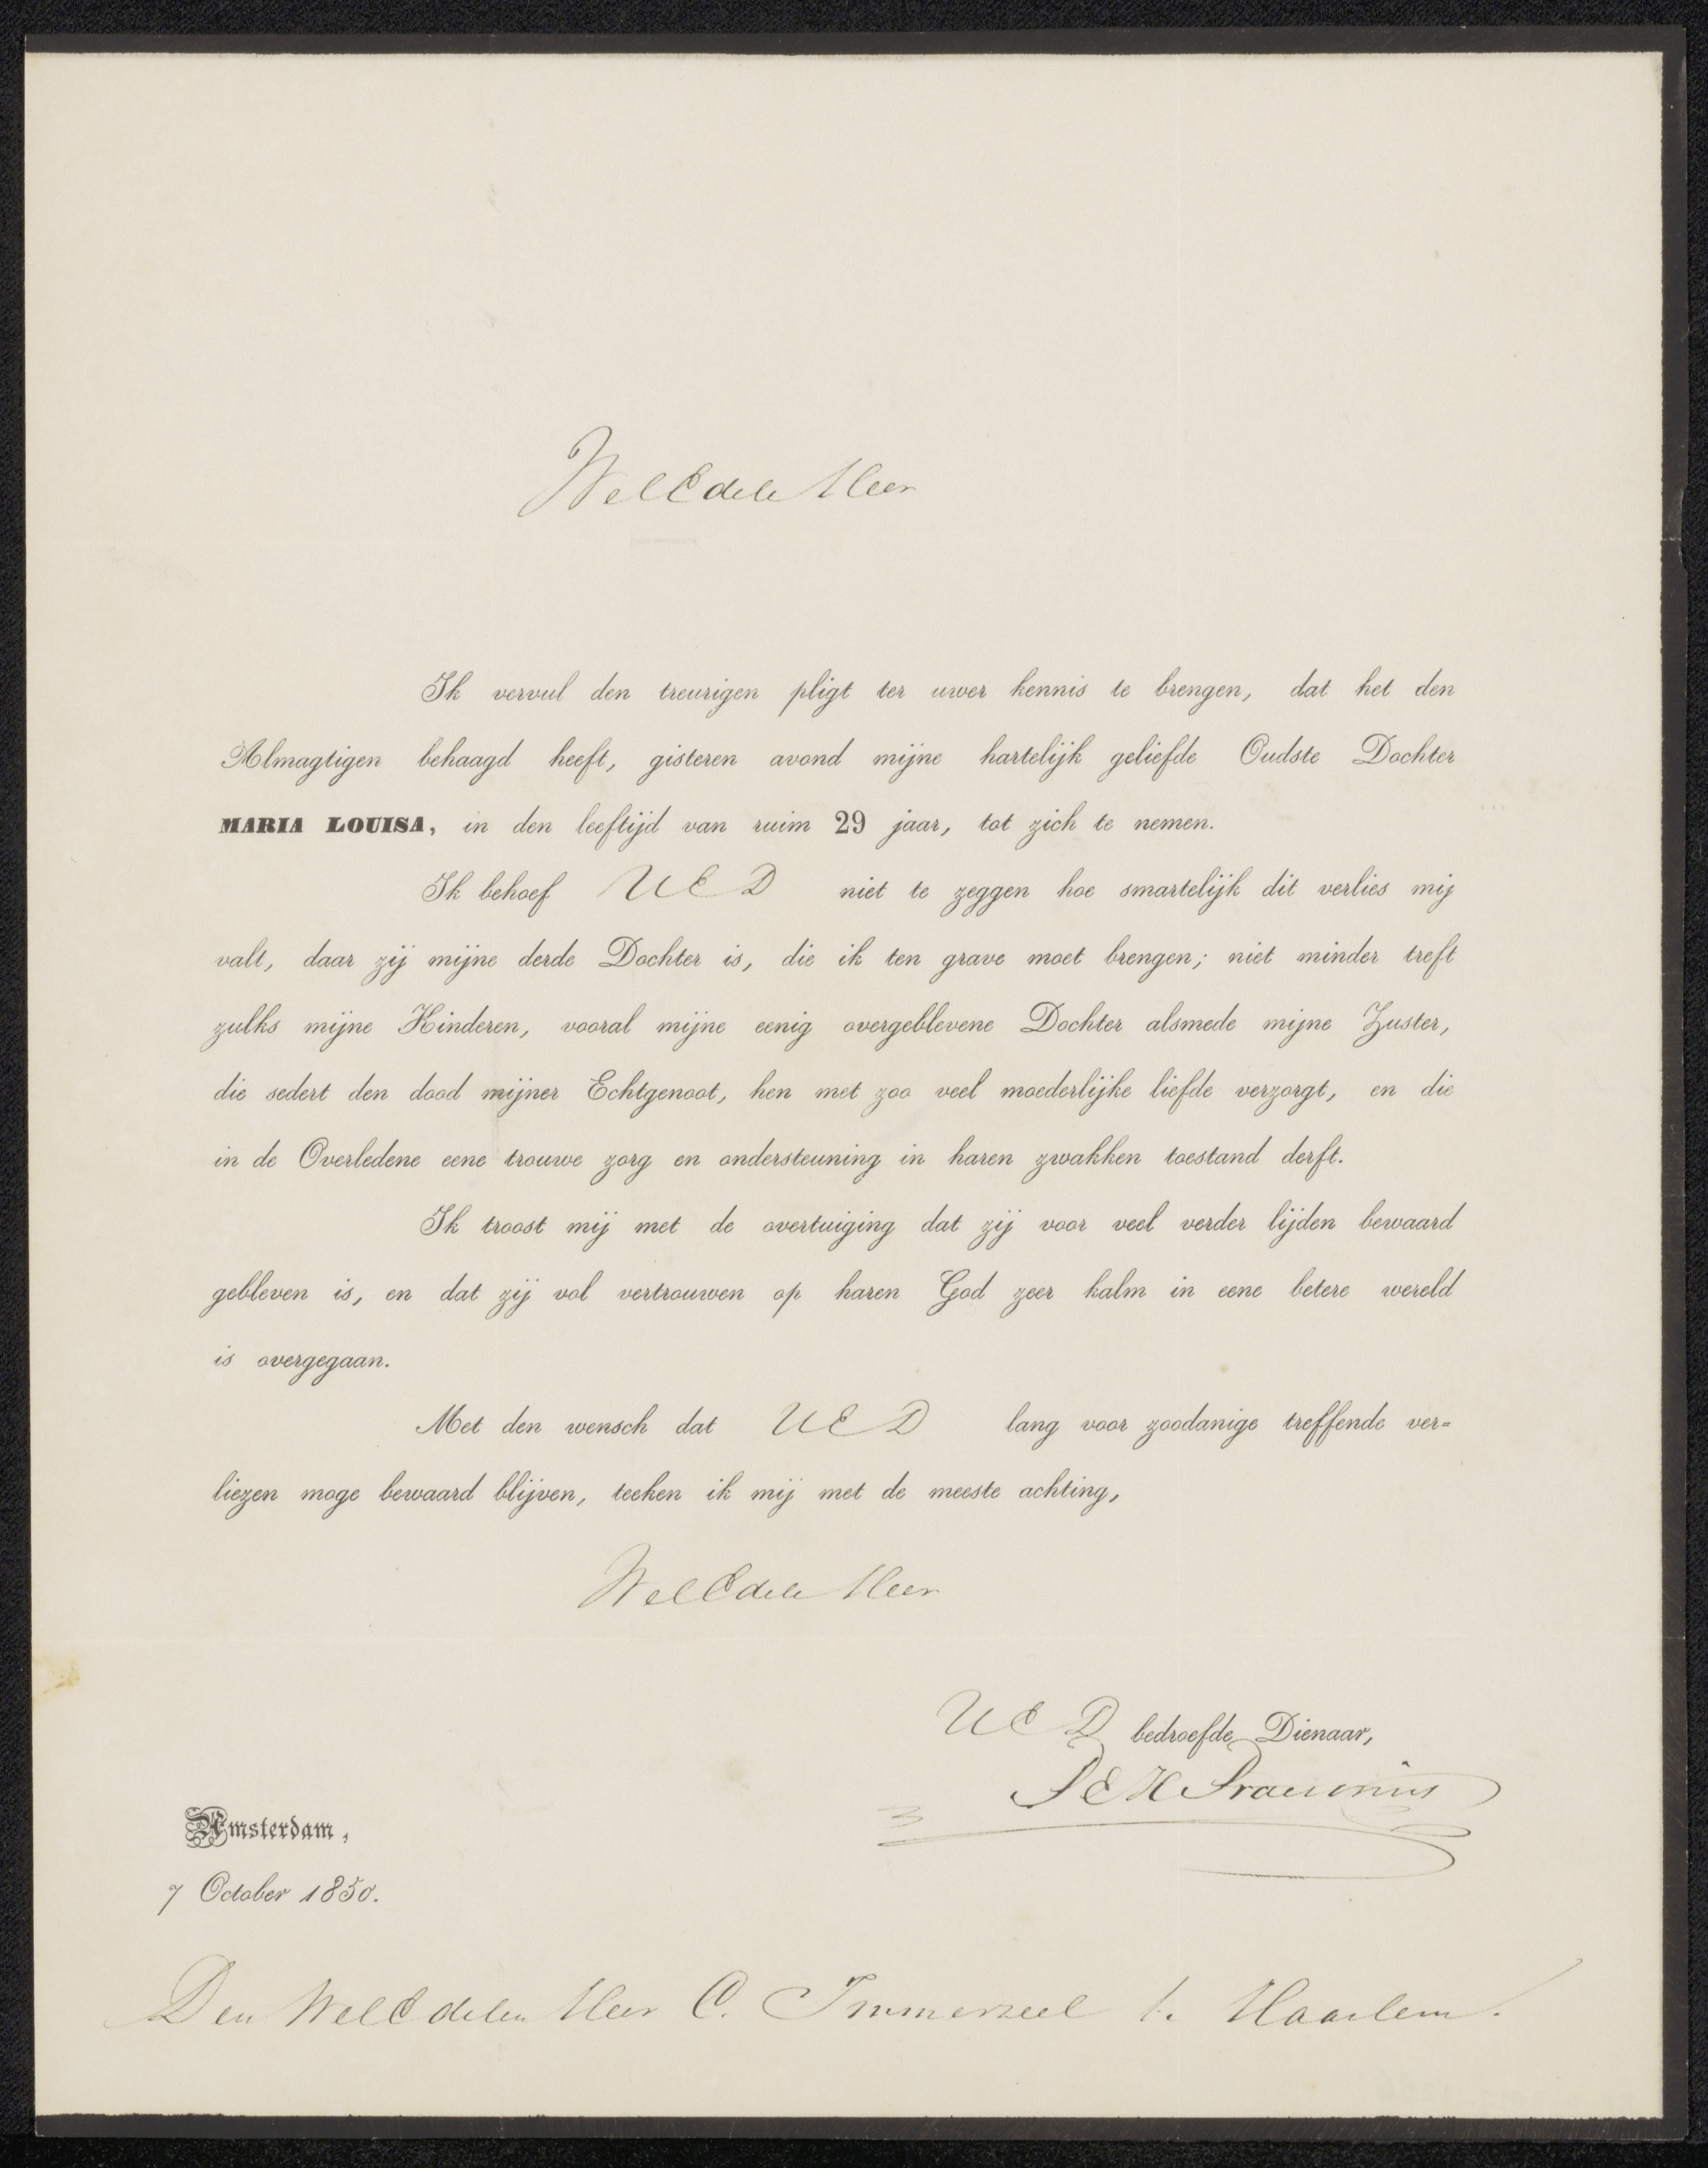 WelEdele Heer
Ik vervul den treurigen pligt ter uwer kennis te brengen, dat het den
Almagtigen behaagd heeft, gisteren avond mijne hartelijk geliefde Oudste Dochter
MARIA LOUISA, in den leeftijd van ruim 29 jaar, tot zich te nemen.
Ik behoef UED niet te zeggen hoe smartelijk dit verlies mij
valt, daar zij mijne derde Dochter is, die ik ten grave moet brengen; niet minder treft
zulks mijne Kinderen, vooral mijne eenig overgeblevene Dochter alsmede mijne Zuster,
die sedert den dood mijner Echtgenoot, hen met zoo veel moederlijke liefde verzorgt, en die
in de Overledene eene trouwe zorg en ondersteuning in haren zwakken toestand derft.
Ik troost mij met de overtuiging dat zij voor veel verder lijden bewaard
gebleven is, en dat zij vol vertrouwen op haren God zeer kalm in eene betere wereld
is overgegaan.
Met den wensch dat UED lang voor zoodanige treffende ver=
liezen moge bewaard blijven, teeken ik mij met de meeste achting,
WelEdele Heer
UED bedroefde Dienaar,
Amsterdam,
7 October 1850.
Den WelEdelen Heer C. Immerzeel te Haarlem.